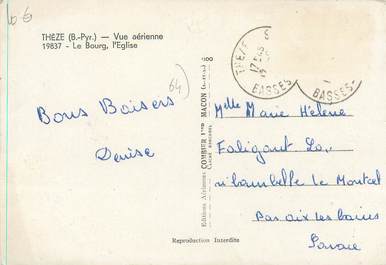 THÈZE (B.-Pyr.) — Vue aérienne
19837 - Le Bourg, l'Eglise
64
Bons Baisers
Denise
Editions Aériennes COMBIER IMP. MACON
THÈZE
BASSES
17
BASSES-
Melle Marie Hélène
Faligant La
Ribambelle Le Montcel
Par aix les bains
Savoie
Reproduction Interdite